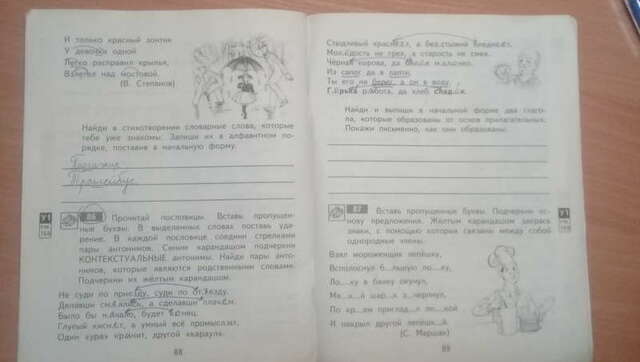 И только красный зонтик
У девочки одной
Легко расправил крылья,
Взлетев над мостовой.
(В. Степанов)
Найди в стихотворении словарные слова, которые
тебе уже знакомы. Запиши их в алфавитном по-
рядке, поставив в начальную форму.
У1
86 Прочитай пословицы. Вставь пропущен-
ные буквы. В выделенных словах поставь уда-
рение. В каждой пословице соедини стрелками
пары антонимов. Синим карандашом подчеркни
КОНТЕКСТУАЛЬНЫЕ антонимы. Найди пары анто-
нимов, которые являются родственными словами.
Подчеркни их жёлтым карандашом.
Не суди по приезду, суди по отъезду.
Делавши смеялись, а сделавши плачем.
Было бы начало, будет конец.
Глупый киснет, а умный всё промыслит.
Один кур.. кормит, другой караул..
88
Стыдливый краснеет, а бесстыжий бледнеет.
Молодость не грех, а старость не смех.
Чёрная корова, да белое молочко.
Из сапог да в лапти.
Ты его на берег, а он в воду.
Горька работа, да хлеб сладок.
Найди и выпиши в начальной форме два глаго-
ла, которые образованы от основ прилагательных.
Покажи письменно, как они образованы.
87 Вставь пропущенные буквы. Подчеркни ос-
нову предложения. Жёлтым карандашом закрась
знаки, с помощью которых связаны между собой
однородные члены.
У1
Взял мороженщик лепёшку,
Всполоснул б...льшую ло...ку,
Ло...ку в банку окунул,
Мя...к... шар...к з...черпнул,
По кр...ям приглад...л ло...кой
И накрыл другой лепёшк...й.
(С. Маршак)
89